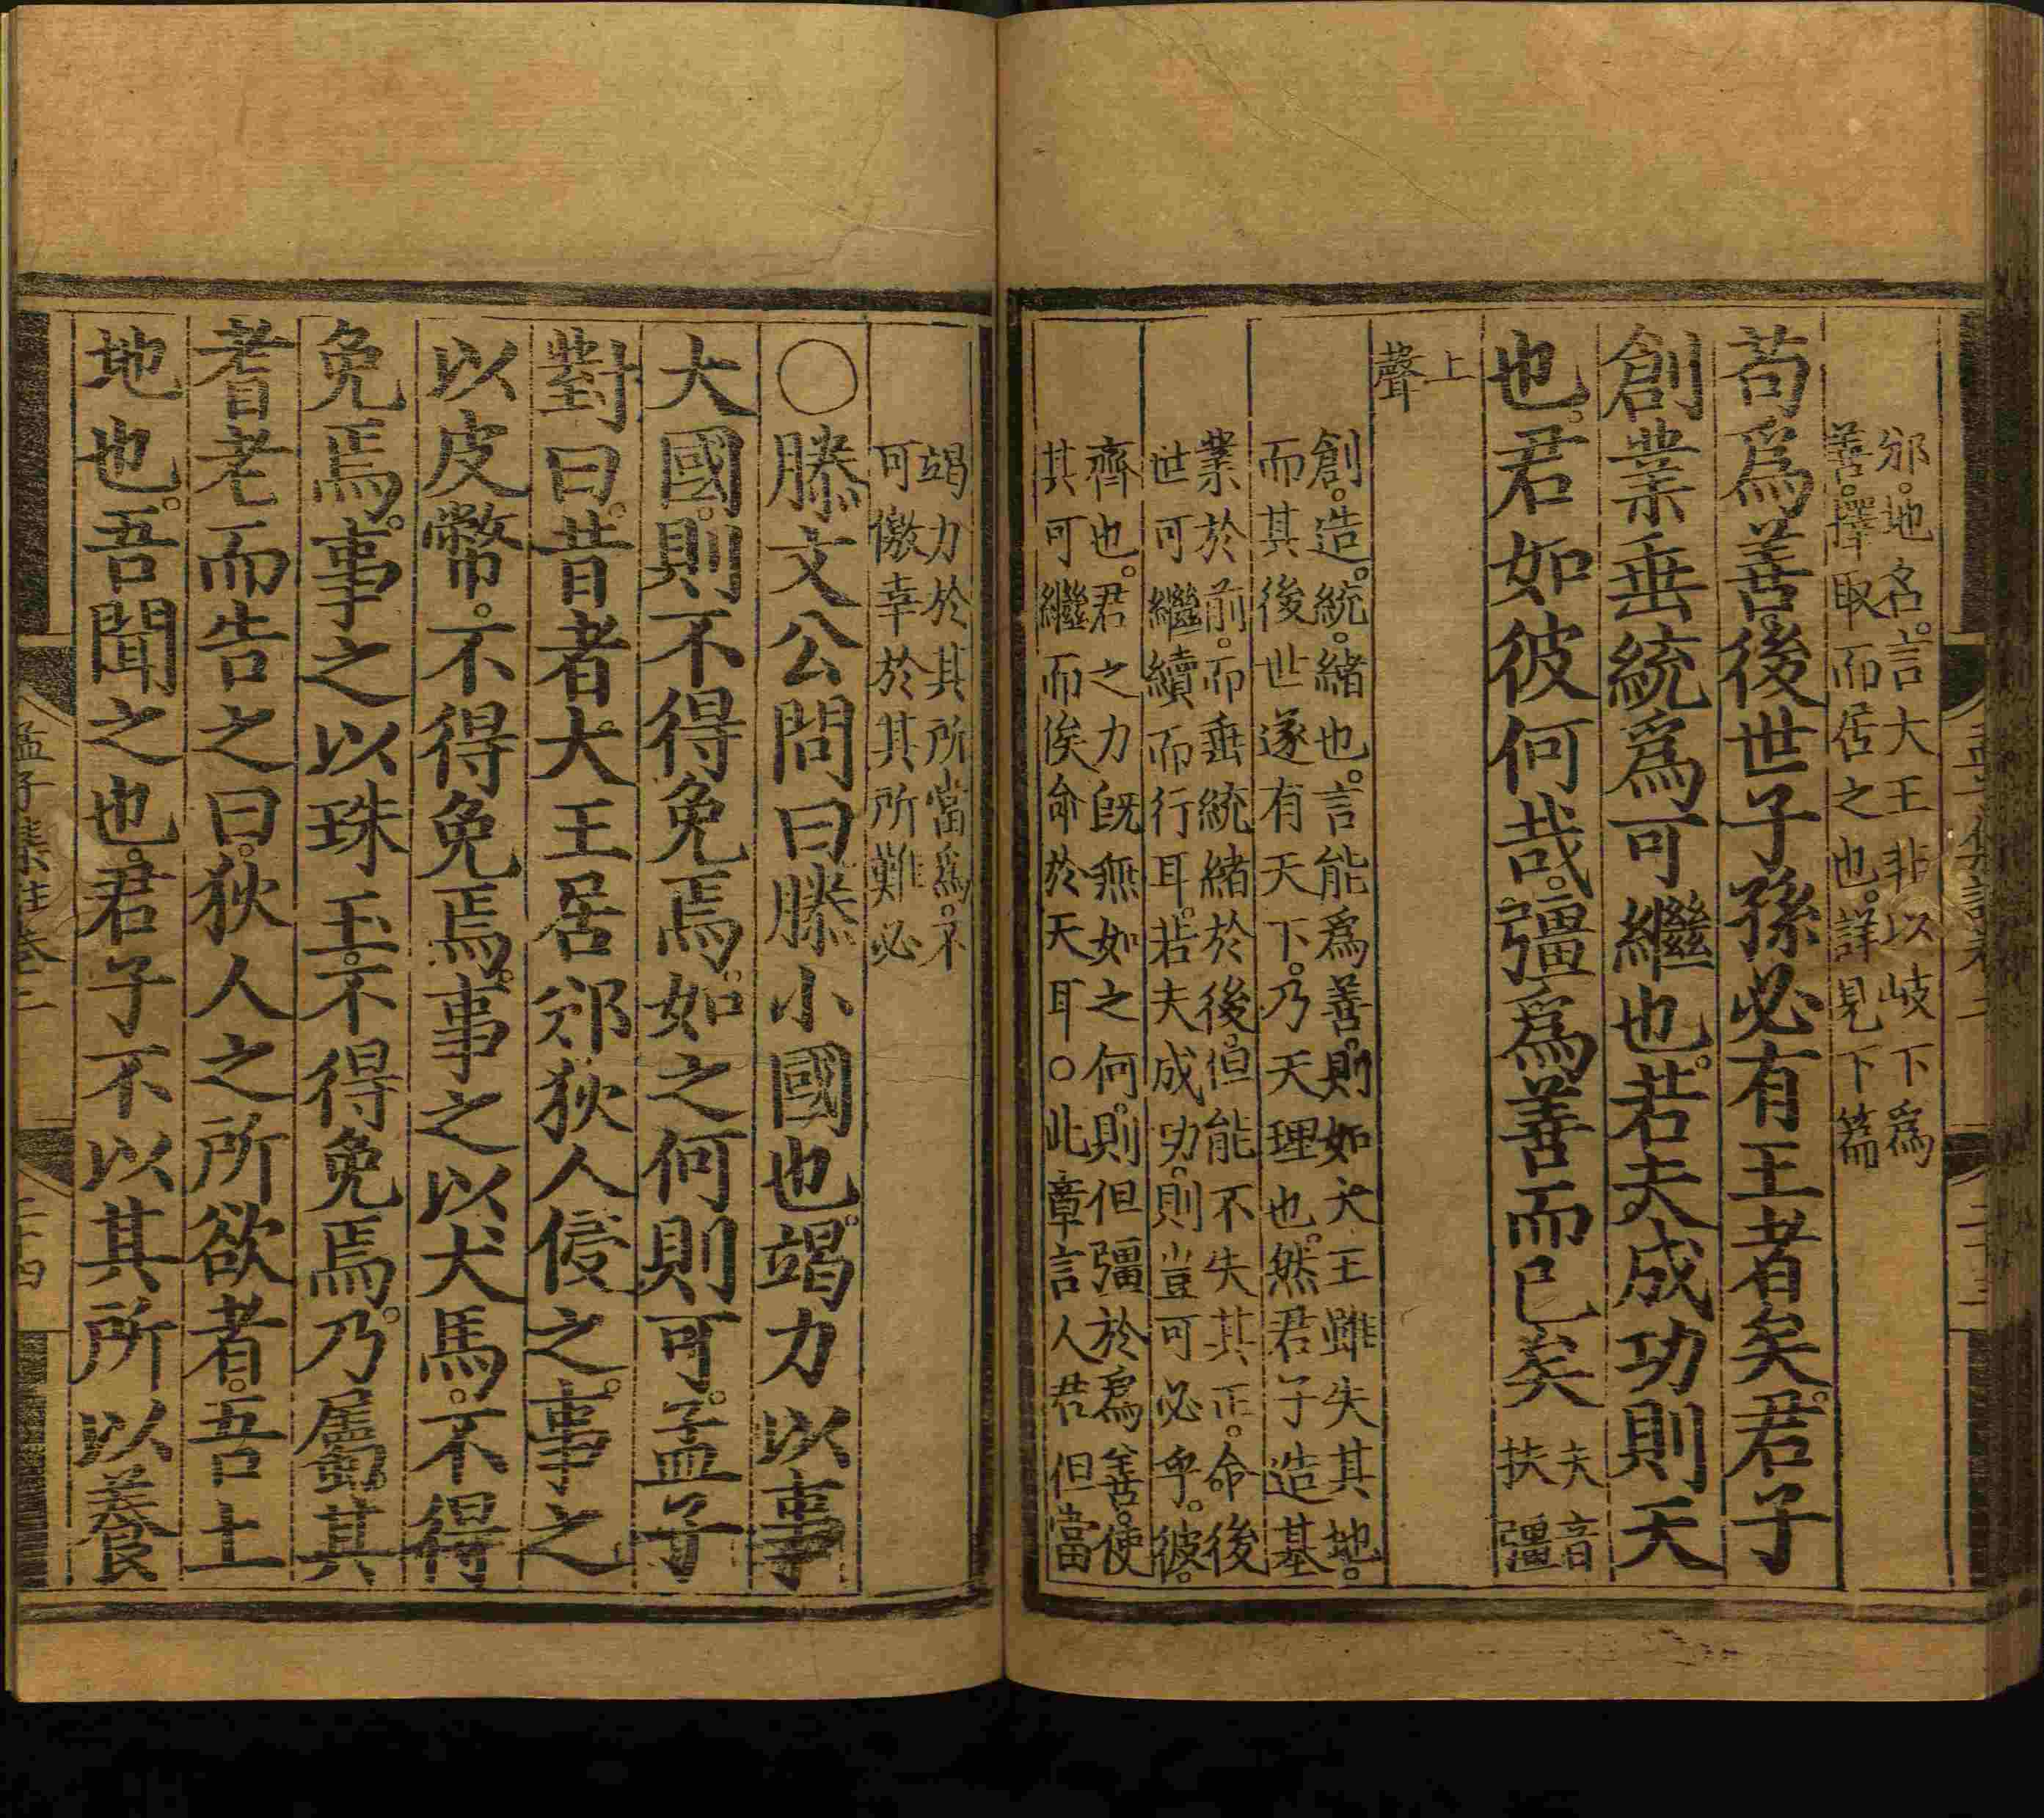 邠。地名。言大王非以岐下爲
善。擇取而居之也。詳見下篇
苟爲善。後世子孫必有王者矣。君子
創業垂統爲可繼也。若夫成功則天
也。君如彼何哉。彊爲善而已矣
夫音
扶彊
上
聲
創。造。統。緒也。言能爲善。則如大王雖失其地。
而其後世遂有天下。乃天理也。然君子造基
業於前。而垂統緒於後。但能不失其正。命後
世可繼續而行耳。若夫成功。則豈可必乎。彼。
齊也。君之力既無如之何。則但彊於爲善。使
其可繼而俟命於天耳。○此章言人君但當
竭力於其所當爲。不
可儌幸於其所難必
○滕文公問曰滕小國也。竭力以事
大國。則不得免焉。如之何則可。孟子
對曰。昔者大王居邠。狄人侵之。事之
以皮幣。不得免焉。事之以犬馬。不得
免焉。事之以珠玉。不得免焉。乃屬其
耆老而告之曰。狄人之所欲者。吾土
地也。吾聞之也。君子不以其所以養
孟子集註卷二
二十四